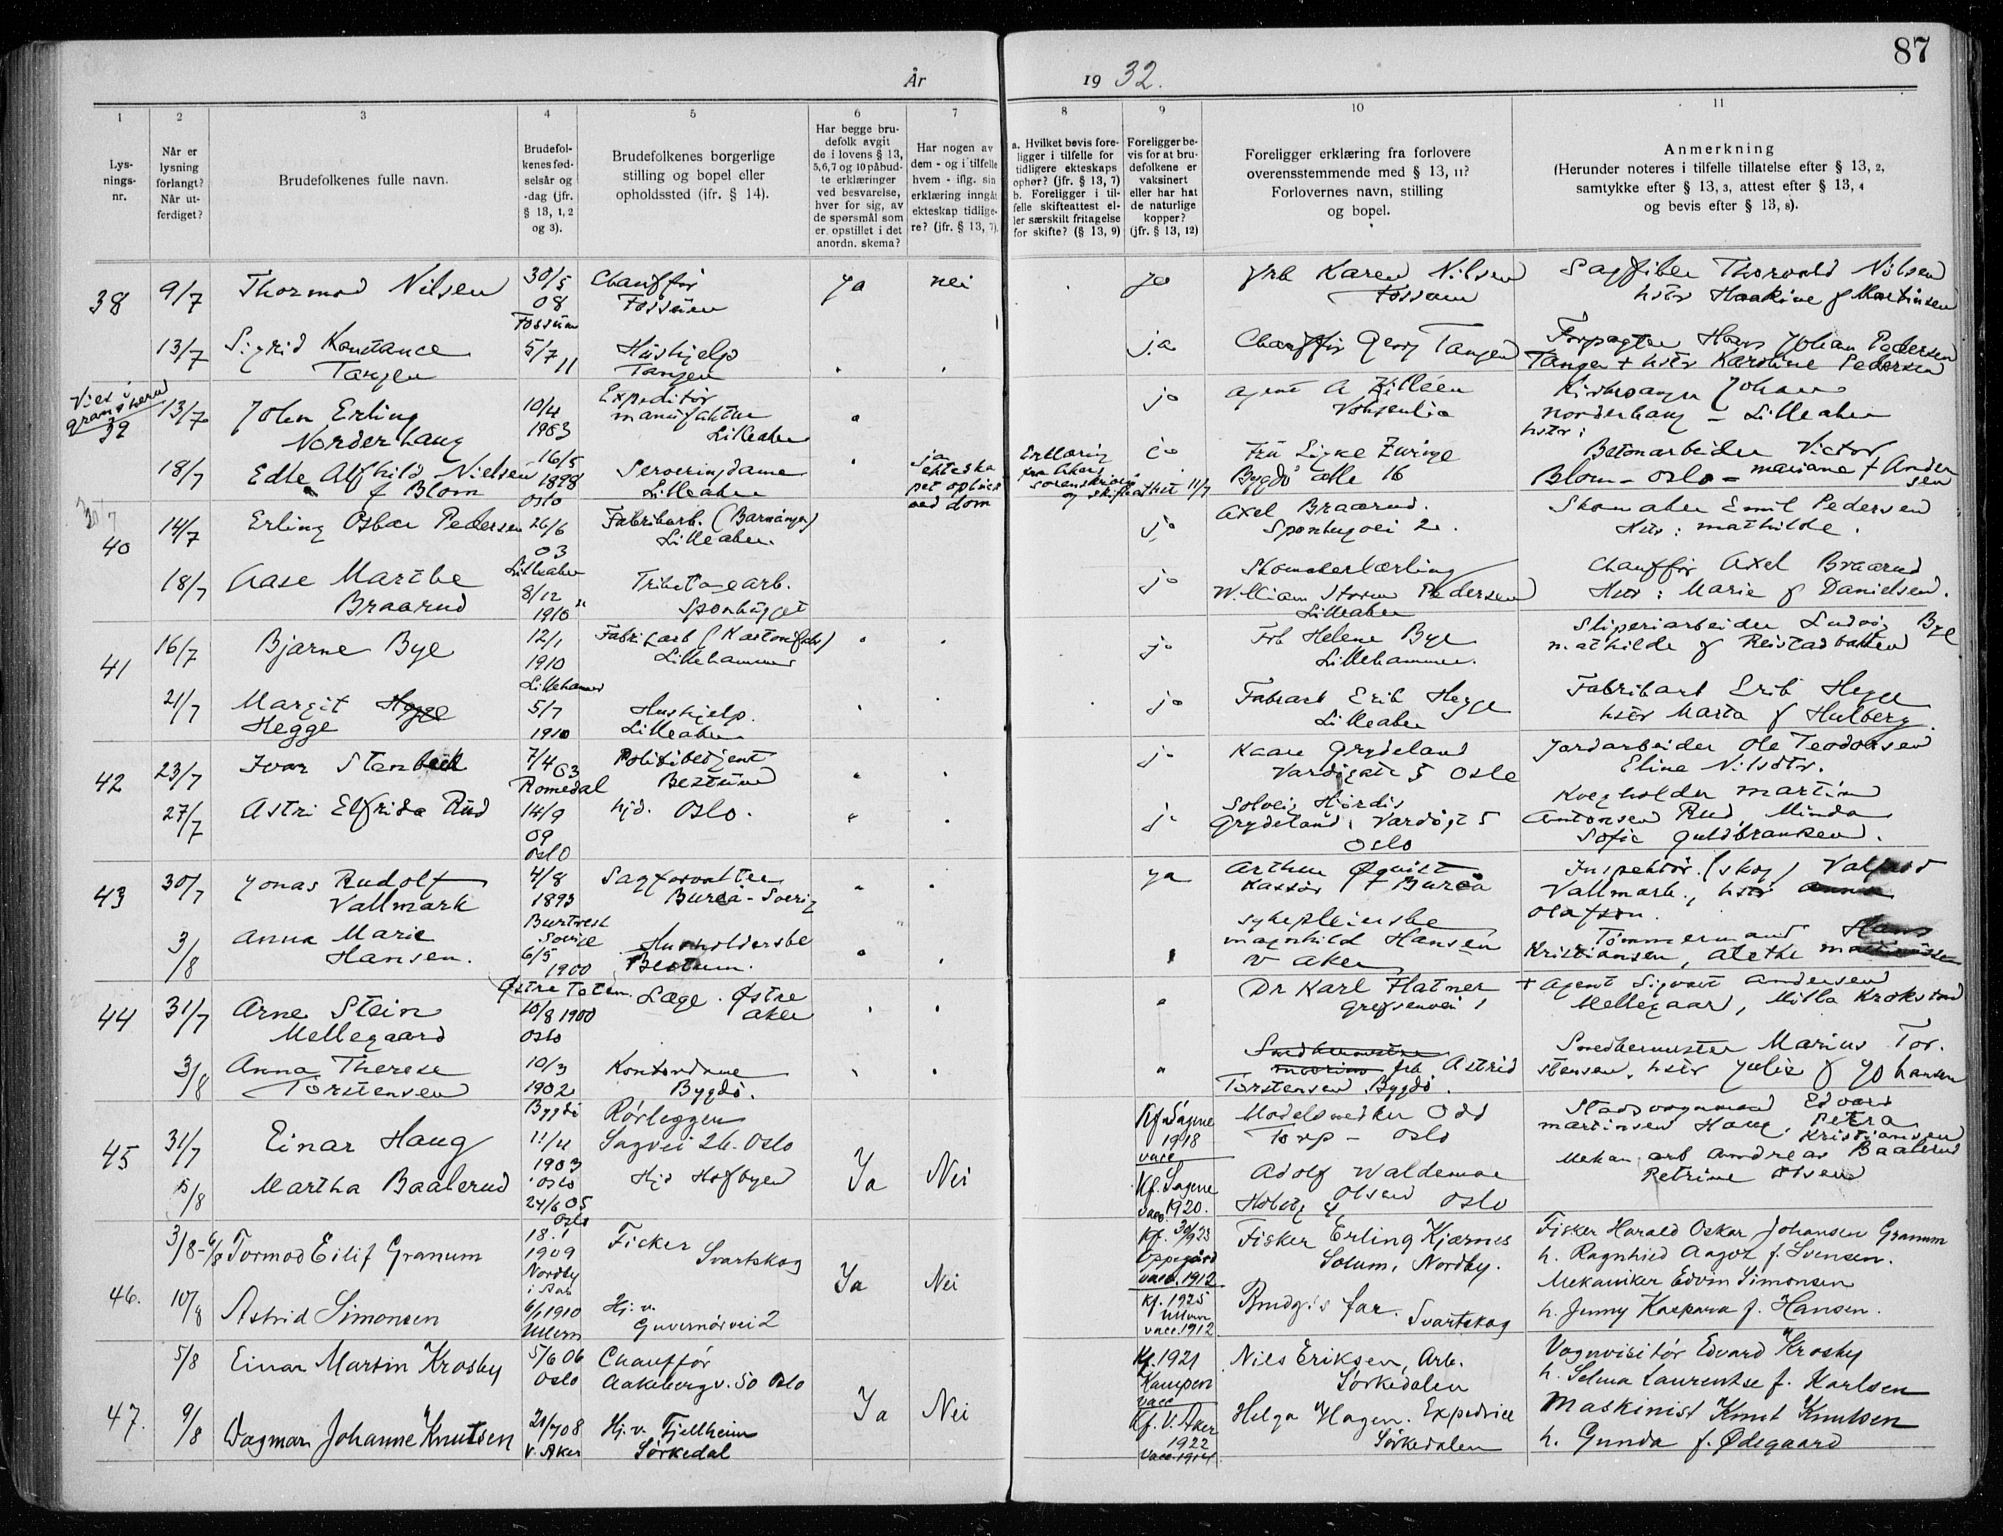 87
År 1932.
1 2 3 4 5 6 7 8 9 10 11
Lys-
nings-
nr.
Når er
lysning
forlangt?
Når ut-
ferdiget?
Brudefolkenes fulle navn.
Brudefol-
kenes fød-
selsår og
-dag (jfr.
§ 13, 1, 2
og 3).
Brudefolkenes borgerlige
stilling og bopel eller
opholdssted (jfr. § 14).
Har begge bru-
defolk avgit
de i lovens § 13,
5,6,7 og 10 påbud-
te erklæringer
ved besvarelse,
hver for sig, av
de spørsmål som
er opstillet i det
anordn. skema?
Har nogen av
dem - og i tilfelle
hvem - iflg. sin
erklæring inngåt
ekteskap tidlige-
re? (jfr. § 13, 7).
a. Hvilket bevis fore-
ligger i tilfelle for
tidligere ekteskaps
ophør? (jfr. § 13, 7)
b. Foreligger i til-
felle skifteattest el-
ler særskilt fritagelse
for skifte? (§ 13, 9)
Foreligger be-
vis for at bru-
defolkene er
vaksinert
eller har hat
de naturlige
kopper?
(jfr. § 13, 12)
Foreligger erklæring fra forlovere
overensstemmende med § 13, 11?
Forlovernes navn, stilling
og bopel.
Anmerkning
(Herunder noteres i tilfelle tillatelse efter § 13, 2,
samtykke efter § 13, 3, attest efter § 13, 4
og bevis efter § 13, 8).
38 9/7 Thormod Nilsen 30/5 08 Fossum Chauffør Fossum ja nei ja Frk Karen Nilsen Fossum Thorvald Nilsen
hstr Haakine f Martinsen
13/7 Sigrid Konstance Tangen 5/7 11 Hushjelp Tangen ja Chauffør Georg Tangen Forpagter Hans Johan Pedersen
Tangen + hstr Karoline Pedersen
Viet i
39 13/7 John Erling Norderhaug 10/4 1903 Expeditør manufaktur Lilleaker ja Agent A Johan
Norderhaug - Lilleaker
hstr:
18/7 Edle Alfhild Nielsen f Blom 16/5 1898 Oslo Serveringsdame Lilleaker ja ekteskapet opløst ved dom Erklæring fra Aker sorenskriveri og skifteattest 11/7 ja Fru Bygdø alle 16 Betonarbeider Victor
Blom - Oslo - Mariane f Andersen
40 14/7 Erling Oskar Pedersen 26/6 03 Lilleaker Fabrikarb. Lilleaker. ja Axel Braarud. 2. Skomaker Emil Pedersen
Hstr: Mathilde.
18/7 Aase Marthe Braarud 8/12 1910 ja Skomakerlærling
William Storm Pedersen
Lilleaker Chauffør Axel Braarud
Hstr: Marie f Danielsen.
41 16/7 Bjarne Bye 12/1 1910 Lillehammer Fabrikarb (Kartonfabr) Lillehammer ja Frk Helene Bye
Lillehammer. Sliperiarbeider Ludvig Bye
Mathilde f Reistadbakken
21/7 Margit Hegge Hegge 5/7 1910 Hushjelp. Lilleaker ja Fabrarb Erik Hegge
Lilleaker Fabrikarb Erik Hegge
hstr Marta f Hulberg.
42 23/7 Ivar Stenbæk 7/4 03 Romedal Politibetjent Bestum Kaare Grydeland
Vardøgate 5 Oslo Jordarbeider Ole Teodorsen
Eline Nilsdtr.
27/7 Astri Elfrida Rud 14/9 09 Oslo hjd. Oslo. Solveig Hjørdis
Grydeland, Vardøgt 5
Oslo Kvegholder Martin
Antonsen Rud, Minda
Sofie Guldbransen.
43 30/7 Jonas Rudolf Vallmark 4/8 1893 Sagforvalter Bureå - Sverig ja Arthur Øqvist
Kassør Bureå Inspektør (skog) Valfrid
Vallmark, hstr Anna
Olafson.
3/8 Anna Marie Hansen. 6/5 1900 Østre Toten Husholderske Bestum. Sykepleierske
Magnhild Hansen
V Aker Tømmermand Hans
Kristiansen, Alethe
44 31/7 Arne Stein Mellegaard 10/8 1900 Oslo Læge. Østre Aker " Dr Karl Hafner
Grefsenvei 1 + Agent Sigvart Andersen
Mellegaar, Milla Krokstad
3/8 Anna Therese Torstensen 10/3 1902 Bygdø Kontordame Bygdø. " Smedhermester Marius frk. Astrid
Torstensen Bygdø. Smedhermester Marius Tor-
stensen. hstr Julie f Johansen
45 31/7 Einar Haug 11/11 1903 Oslo Rørlegger Sagvei 26. Oslo Ja Nei Kf Sagene 1918 vacc Modelsnedker Odd
Torp - Oslo Stadsvognmand Edvard
Martinsen Haug, Petra
Kristiansen
5/8 Martha Baalerud 24/6 05 Oslo Hjd Hofbyen Kf. Sagene vacc. 1920. Adolf Waldemar
Olsen Oslo Mekan. arb Andreas Baalerud
Petrine Olsen
46. 3/8-6/8 Tormod Eilif Granum 18.1 1909 Nordby i Aas Fisker Svartskog Ja Nei Kf. 30/9 23 Oppegård vacc. 1912 Fisker Erling Kjærnes
Solum, Nordby. Fisker Harald Oskar Johansen Granum
h. Ragnhild Aagot f. Svensen.
10/8 Astrid Simonsen 6/1 1910 Ullern Hj. v. Guvernørvei 2 Kf. 1925 Ullern vacc. 1912 Brudgs far. Svartskog Mekaniker Edvin Simonsen
h. Jenny Kaspara f. Hansen.
47. 5/8 Einar Martin Krosby 5/6 06 Oslo Chauffør Aakebergv. 50 Oslo Ja Nei Kf. 1921 Kampen vacc Nils Eriksen, Arb.
Sørkedalen Vognvisitør Edvard Krosby
h. Selma Laurentse f. Karlsen
9/8 Dagmar Johanne Knutsen 21/7 08 V. Aker Hj. v. Fjellheim Sørkedal Kf. V. Aker 1922 vacc. 1914 Helga Hagen. Expedrice
Sørkedalen Maskinist Knut Knutsen
h. Gunda f. Ødegaard